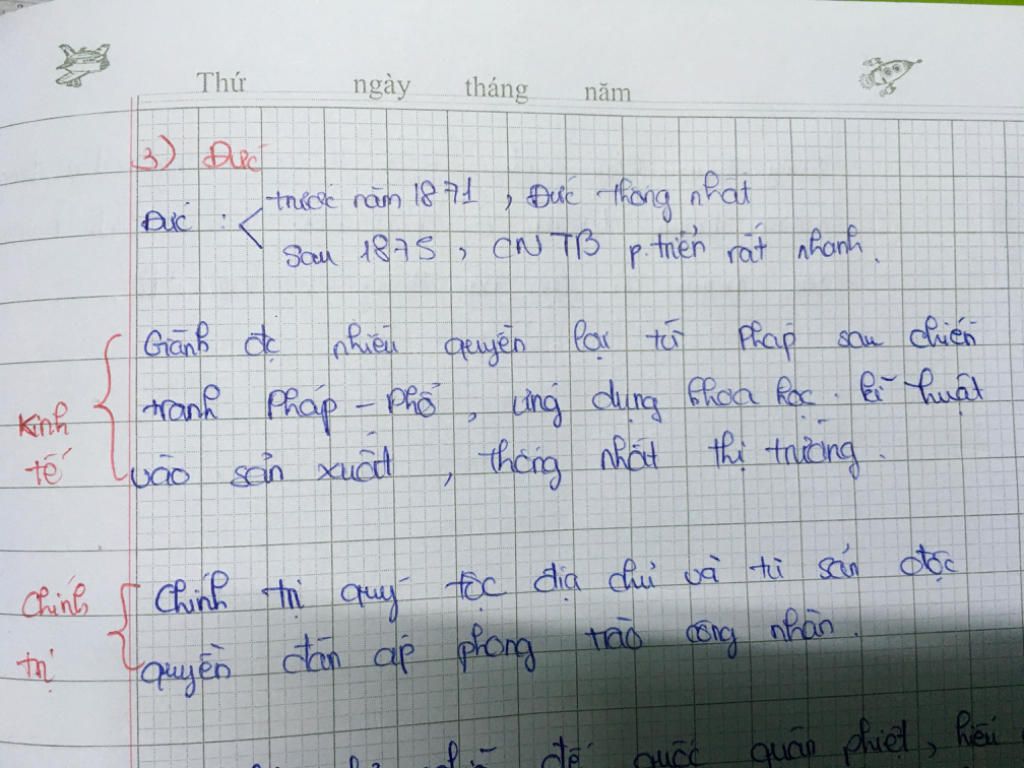 Thứ ngày tháng năm
3) Đức
Đức : < trước năm 1871, Đức thống nhất
Sau 1875, CNTB p.triển rất nhanh.
Kinh tế
Giành đc nhiều quyền lợi từ Pháp sau chiến
tranh Pháp - Phổ, ứng dụng khoa học. kĩ thuật
vào sản xuất, thống nhất thị trường.
Chính trị
Chính trị quý tộc địa chủ và tư sản độc
quyền đàn áp phong trào công nhân.
đế quốc quân phiệt, hiếu